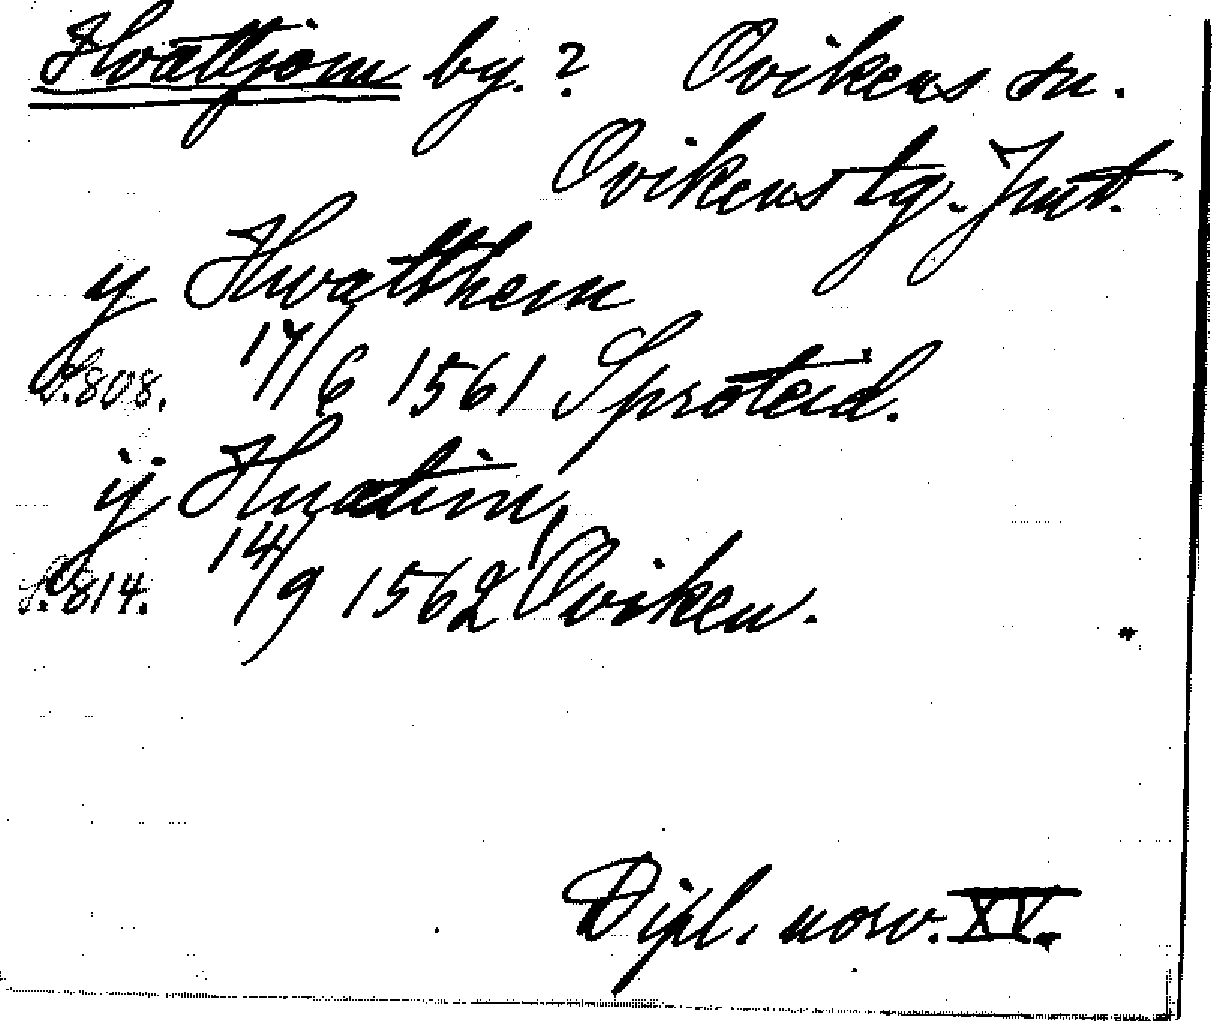 Hvattjom by.? Ovikens sn.
Ovikens tg. Jmt.
y Hwatthem
S.808. 17/6 1561 Sproteid.
ij Huatim,
S.814. 14/9 1562 Oviken.
Dipl. norv. XV.